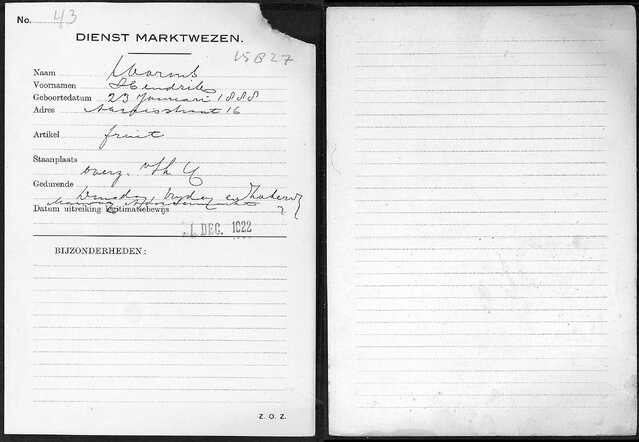 No. 43
DIENST MARKTWEZEN.
VSB27
Naam Warms
Voornamen Hendrik
Geboortedatum 23 Januari 1888
Adres 16
Artikel fruit
Staanplaats
overz.
Gedurende
Dinsdag, Vrijdag en Zaterd
Datum uitreiking legitimatiebewijs
1 DEC. 1922
BIJZONDERHEDEN:
Z. O. Z.